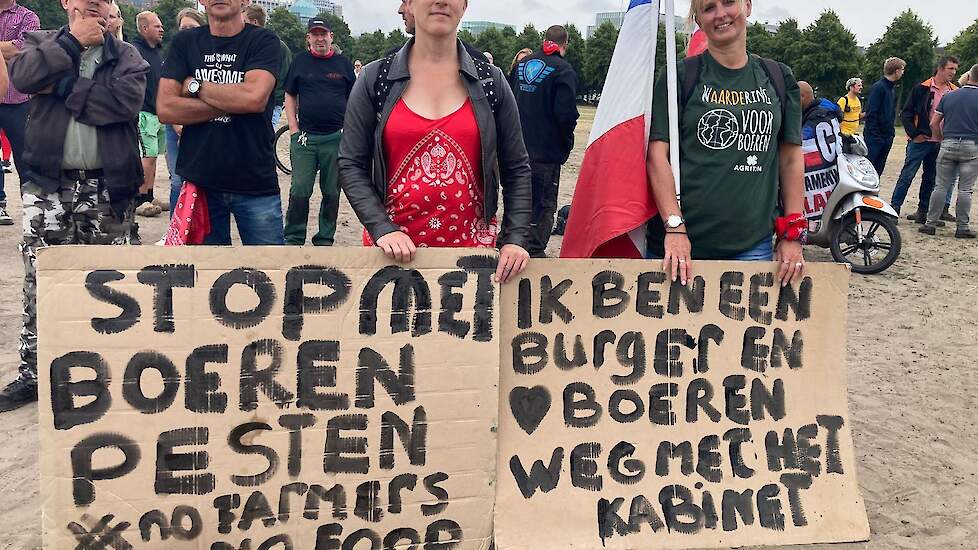 THIS IS
WHAT
AWESOME
WAARDERING
VOOR
BOEREN
AGRIFIRM
STOP MET
BOEREN
PESTEN
NO FARMERS
NO FOOD
IK BEN EEN
BURGER EN
♥ BOEREN
WEG MET HET
KABINET